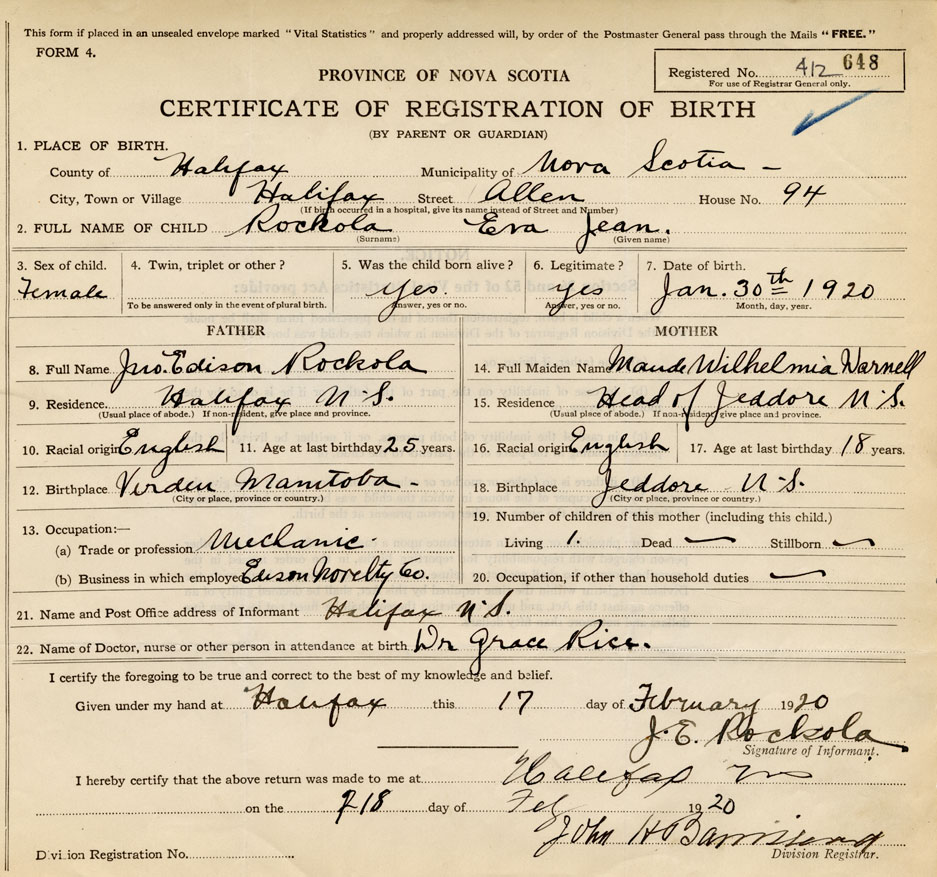 This form if placed in an unsealed envelope marked "Vital Statistics" and properly addressed will, by order of the Postmaster General pass through the Mails "FREE."
FORM 4.
Registered No. 412 648
For use of Registrar General only.
PROVINCE OF NOVA SCOTIA
CERTIFICATE OF REGISTRATION OF BIRTH
(BY PARENT OR GUARDIAN)
1. PLACE OF BIRTH.
County of Halifax Municipality of Nova Scotia -
City, Town or Village Halifax Street Allen House No. 94
(If birth occurred in a hospital, give its name instead of Street and Number)
2. FULL NAME OF CHILD Rockola Eva Jean.
(Surname) (Given name)
3. Sex of child. 4. Twin, triplet or other? 5. Was the child born alive? 6. Legitimate? 7. Date of birth.
Female yes. yes Jan. 30th 1920
To be answered only in the event of plural birth. Answer, yes or no. Answer, yes or no. Month, day, year.
FATHER MOTHER
8. Full Name Jno. Edison Rockola 14. Full Maiden Name Maude Wilhelmia Warnell
9. Residence. Halifax N.S. 15. Residence Head of Jeddore N.S.
(Usual place of abode.) If non-resident, give place and province. (Usual place of abode.) If non-resident give place and province.
10. Racial origin English 11. Age at last birthday 25 years. 16. Racial origin English 17. Age at last birthday 18 years.
12. Birthplace Virden Manitoba - 18. Birthplace Jeddore N.S.
(City or place, province or country.) (City or place, province or country.)
13. Occupation:— 19. Number of children of this mother (including this child.)
(a) Trade or profession Mechanic Living 1. Dead — Stillborn —
(b) Business in which employed Edison Novelty Co. 20. Occupation, if other than household duties —
21. Name and Post Office address of Informant Halifax N.S.
22. Name of Doctor, nurse or other person in attendance at birth Dr Grace Rice.
I certify the foregoing to be true and correct to the best of my knowledge and belief.
Given under my hand at Halifax this 17 day of February 1920
J. E. Rockola
Signature of Informant.
I hereby certify that the above return was made to me at Halifax NS
on the 18 day of Feb 1920
John H
Division Registration No. Division Registrar.